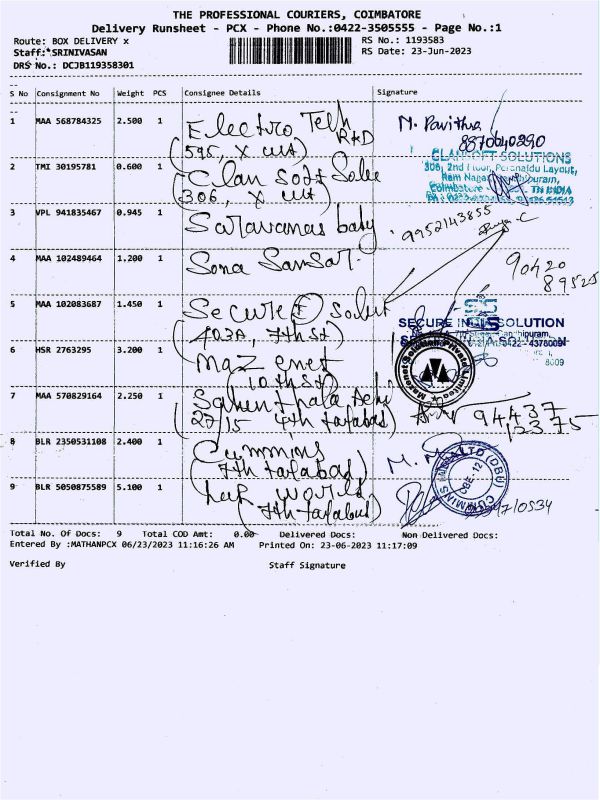 THE PROFESSIONAL COURIERS, COIMBATORE
Delivery Runsheet - PCX - Phone No.:0422-3505555 - Page No.:1
Route: BOX DELIVERY x
RS No.: 1193583
Staff:*SRINIVASAN
RS Date: 23-Jun-2023
DRS No.: DCJB119358301
S No Consignment No Weight PCS Consignee Details Signature
1 MAA 568784325 2.500 1 Electro Tech R&D
M. Pavithra
(595, X cut)
8870640890
CLANSOFT SOLUTIONS
2 TMI 30195781 0.600 1 Clan Soft Solu
306, 2nd Floor, Layout,
Ram Nagar
Coimbatore TN INDIA
(306, X cut)
3 VPL 941835467 0.945 1 Saravanas baby
9952143855
4 MAA 102489464 1.200 1 Sona Sansar
90420
89525
5 MAA 102083687 1.450 1 Secure I Solut
SECURE SOLUTION
(403A, 7th St)
6 HSR 2763295 3.200 1 Maz enet
(10th St)
7 MAA 570829164 2.250 1
27/15 4th tatabad)
94437
13375
8 BLR 2350531108 2.400 1 Cummins
(7th tatabad)
9 BLR 5050875589 5.100 1 world
(7th tatabad)
Total No. Of Docs: 9 Total COD Amt: 0.00 Delivered Docs: Non-Delivered Docs:
Entered By :MATHANPCX 06/23/2023 11:16:26 AM Printed On: 23-06-2023 11:17:09
Verified By Staff Signature